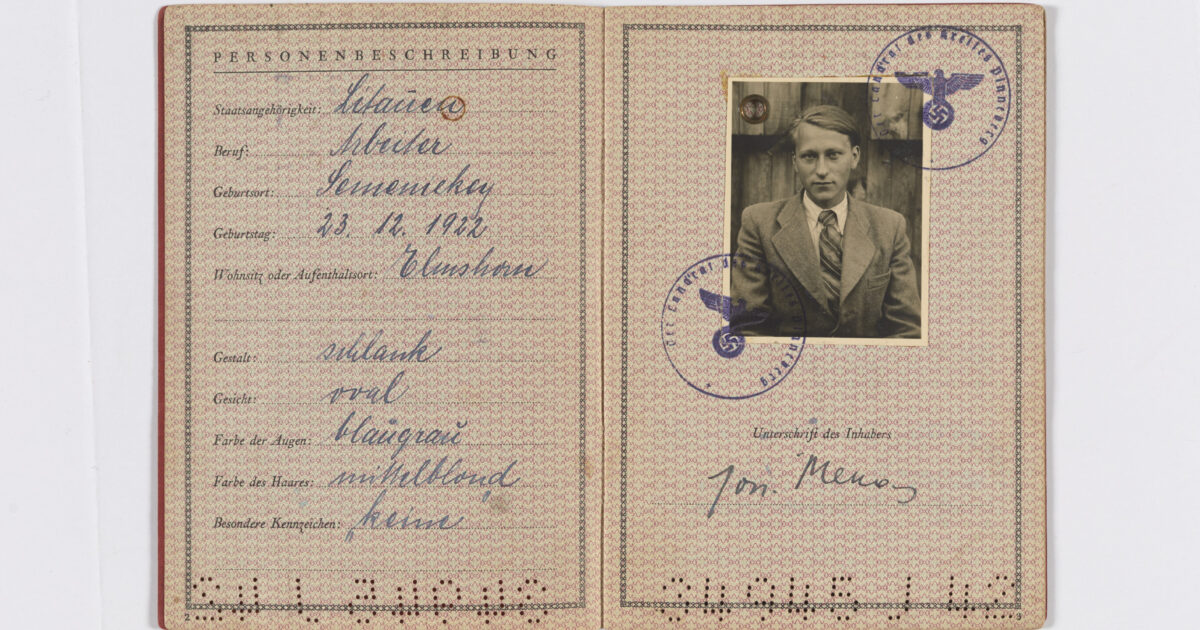 PERSONENBESCHREIBUNG
Staatsangehörigkeit: Litauen
Beruf: Arbeiter
Geburtsort:
Geburtstag: 23. 12. 1922
Wohnsitz oder Aufenthaltsort: Elmshorn
Gestalt: schlank
Gesicht: oval
Farbe der Augen: blaugrau
Farbe des Haares: mittelblond
Besondere Kennzeichen: keine
2
Landrat des Kreises Pinneberg
Der Landrat des Kreises Pinneberg
Unterschrift des Inhabers
3